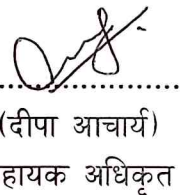 (दीपा आचार्य)
हायक अधिकृत